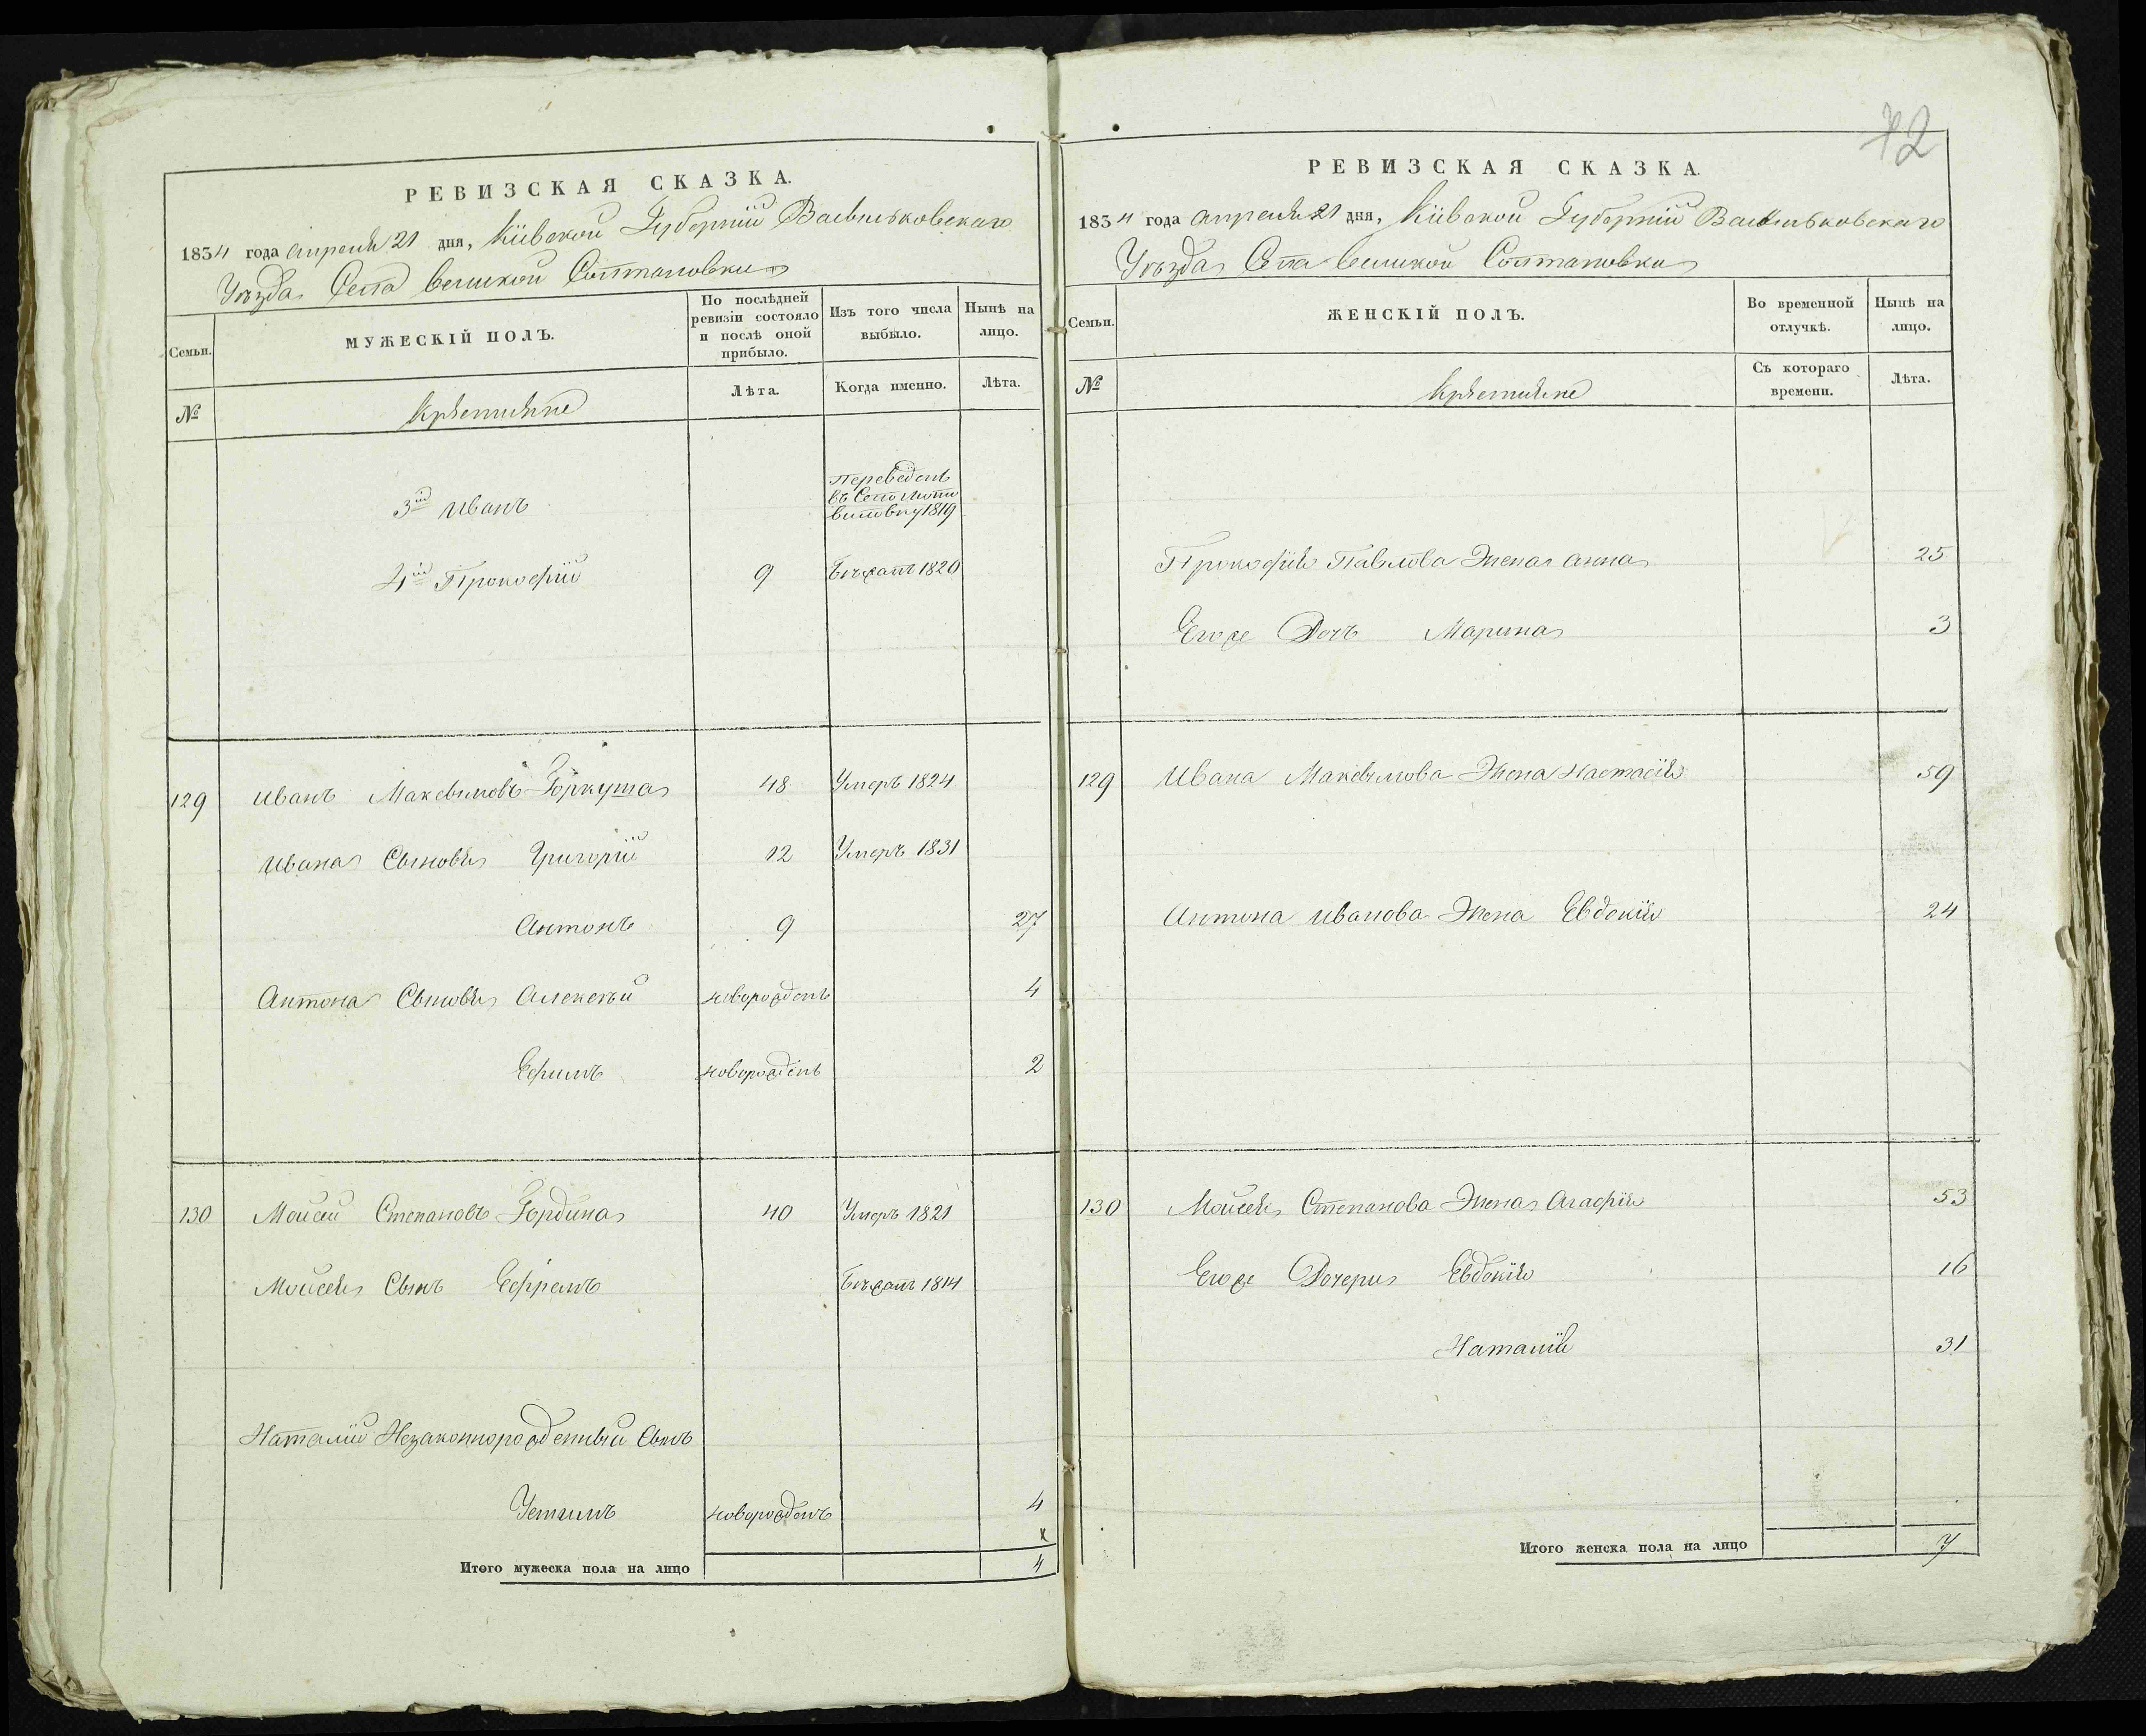 42
РЕВИЗСКАЯ СКАЗКА.
1834 года апреля 21 дня, Кіевской Губерніи Васильковскаго
Уѣзда Села Великой Солтановки
Семьи.
МУЖЕСКІЙ ПОЛЪ.
По послѣдней ревизіи состояло и послѣ оной прибыло.
Изъ того числа выбыло.
Нынѣ на лицо.
№
Крѣстьяне
Лѣта.
Когда именно.
Лѣта.
3й Иванъ Переведенъ
въ Село
1819
4й Прокофій 9 Бѣжалъ 1820
129 Иванъ Максымовъ Горкуша 48 Умеръ 1824
Ивана Сыновья Григорій 12 Умеръ 1831
Антонъ 9 27
Антона Сыновья Алексѣй новорожденъ 4
Ефимъ новорожденъ 2
130 Мойсей Степановъ Гордина 40 Умеръ 1821
Мойсея Сынъ Ефремъ Бѣжалъ 1814
Наталіи Незаконнорожденный Сынъ
Устимъ новорожденъ 4
х
Итого мужеска пола на лицо 4
РЕВИЗСКАЯ СКАЗКА.
1834 года апреля 21 дня, Кіевской Губерніи Васильковскаго
Уѣзда Села Великой Солтановки
Семьи.
ЖЕНСКІЙ ПОЛЪ.
Во временной отлучкѣ.
Нынѣ на лицо.
№
Крѣстьяне
Съ котораго времени.
Лѣта.
Прокофія Павлова Жена Анна 25
Егоже Дочъ Марина 3
129 Ивана Максымова Жена Настасія 59
Антона Иванова Жена Евдокія 24
130 Мойсея Степанова Жена Агафія 53
Егоже Дочери Евдокія 16
Наталія 31
Итого женска пола на лицо 7